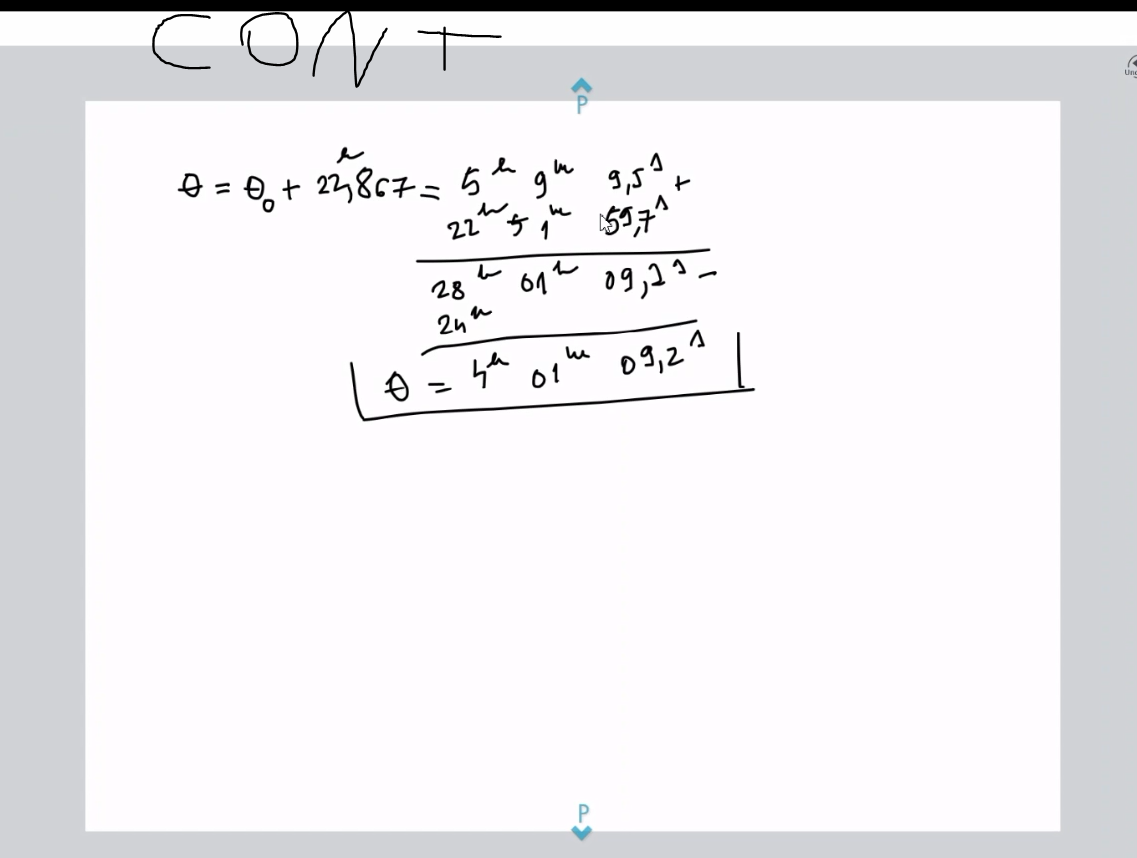 CONT
Und
P
θ = θ₀ + 22,867ʰ = 5ʰ 9ᵐ 9,5ˢ +
22ʰ 51ᵐ 59,7ˢ
28ʰ 01ᵐ 09,2ˢ −
24ʰ
θ = 4ʰ 01ᵐ 09,2ˢ
P